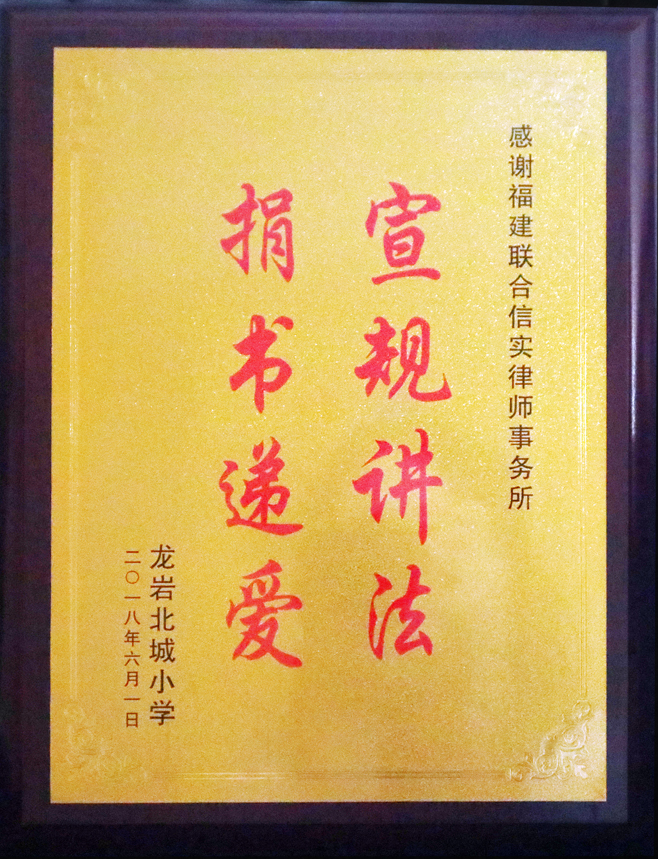 感谢福建联合信实律师事务所
宣规讲法
捐书递爱
龙岩北城小学
二〇一八年六月一日